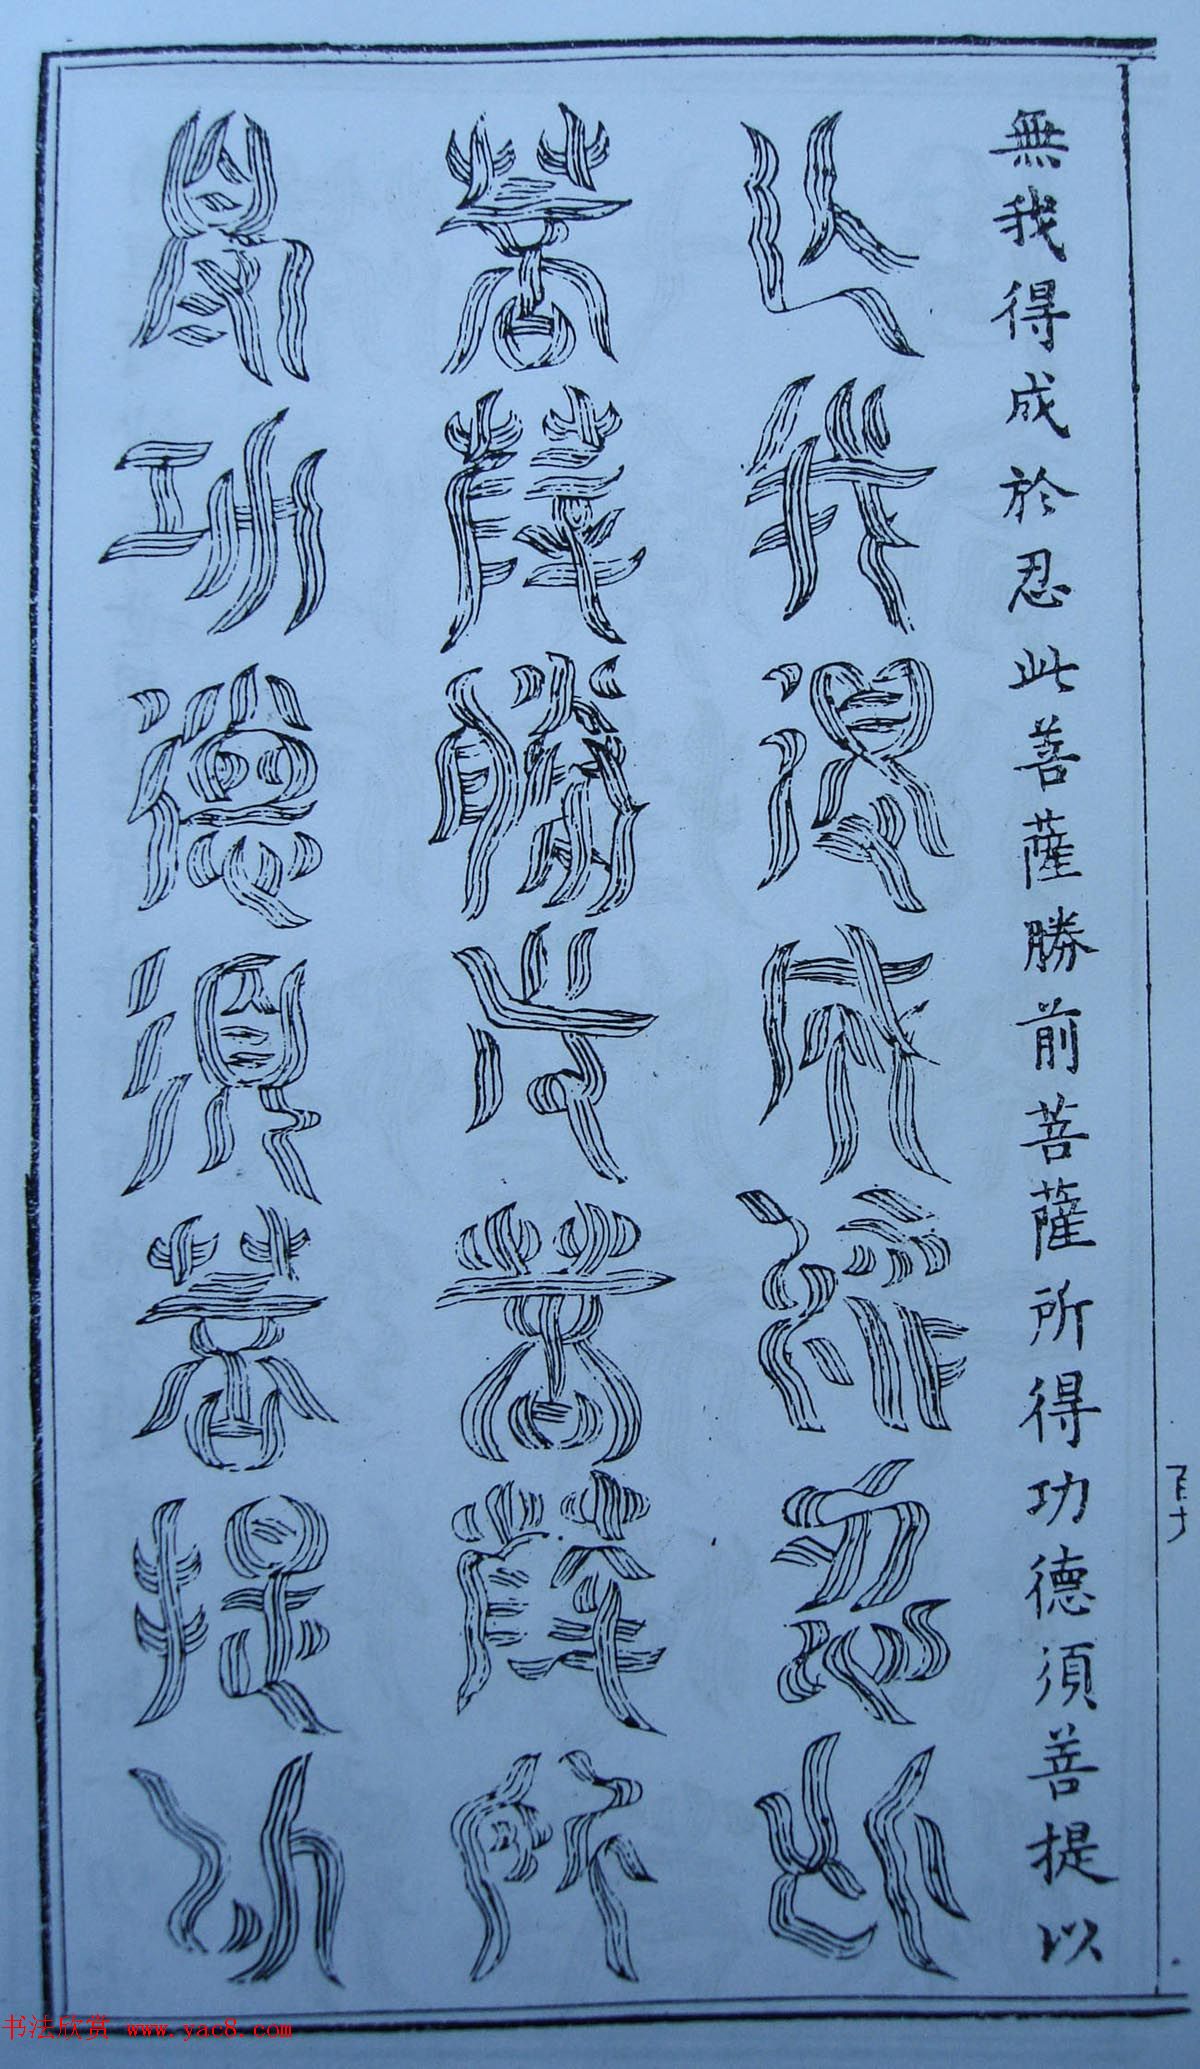 無我得成於忍此菩薩勝前菩薩所得功德須菩提以
無我得成於忍此
菩薩勝前菩薩所
得功德須菩提以
书法欣赏 www.yac8.com